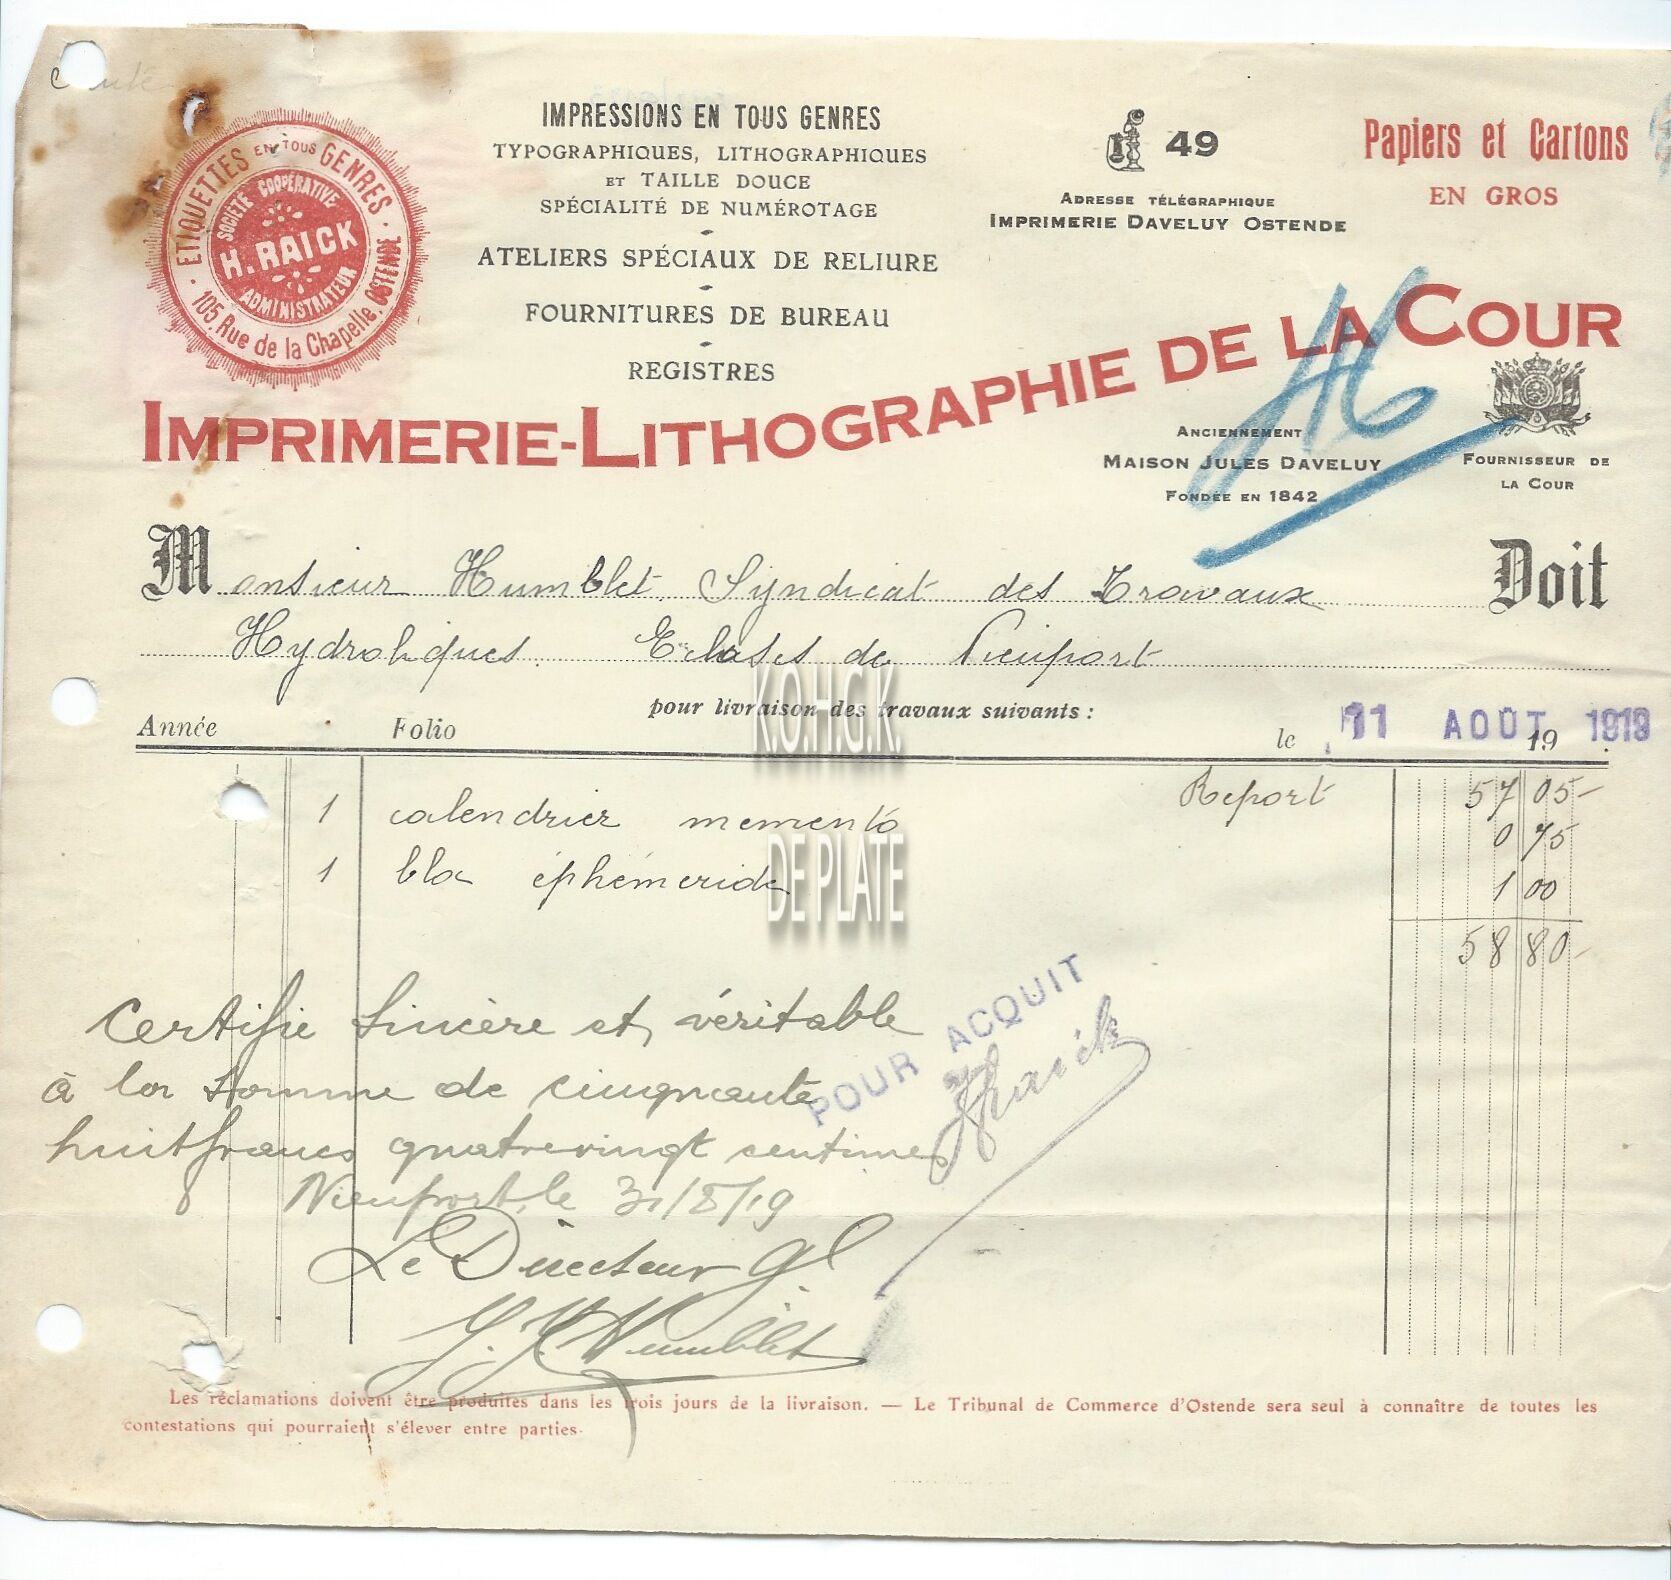 ETIQUETTES EN TOUS GENRES
SOCIÉTÉ COOPÉRATIVE
H. RAICK
ADMINISTRATEUR
105, Rue de la Chapelle, OSTENDE
IMPRESSIONS EN TOUS GENRES
TYPOGRAPHIQUES, LITHOGRAPHIQUES
ET TAILLE DOUCE
SPÉCIALITÉ DE NUMÉROTAGE
ATELIERS SPÉCIAUX DE RELIURE
FOURNITURES DE BUREAU
REGISTRES
49
ADRESSE TÉLÉGRAPHIQUE
IMPRIMERIE DAVELUY OSTENDE
Papiers et Cartons
EN GROS
IMPRIMERIE-LITHOGRAPHIE DE LA COUR
ANCIENNEMENT
MAISON JULES DAVELUY
FONDÉE EN 1842
FOURNISSEUR DE
LA COUR
Monsieur Humblet Syndicat des Travaux Doit
Hydroliques. Ecluses de Nieuport
pour livraison des travaux suivants :
Année Folio le 11 AOÛT 19 1919
Report 57 05-
1 calendrier memento 0 75
1 bloc éphéméride 1 00
58 80-
Certifie Sincère et véritable
à la somme de cinquante
huit francs quatrevingt centimes
POUR ACQUIT
H Raick
Nieuport, le 31/8/19
Le Directeur Gl.
Humblet
Les réclamations doivent être produites dans les trois jours de la livraison. — Le Tribunal de Commerce d'Ostende sera seul à connaître de toutes les
contestations qui pourraient s'élever entre parties.
K.O.H.G.K.
DE PLATE